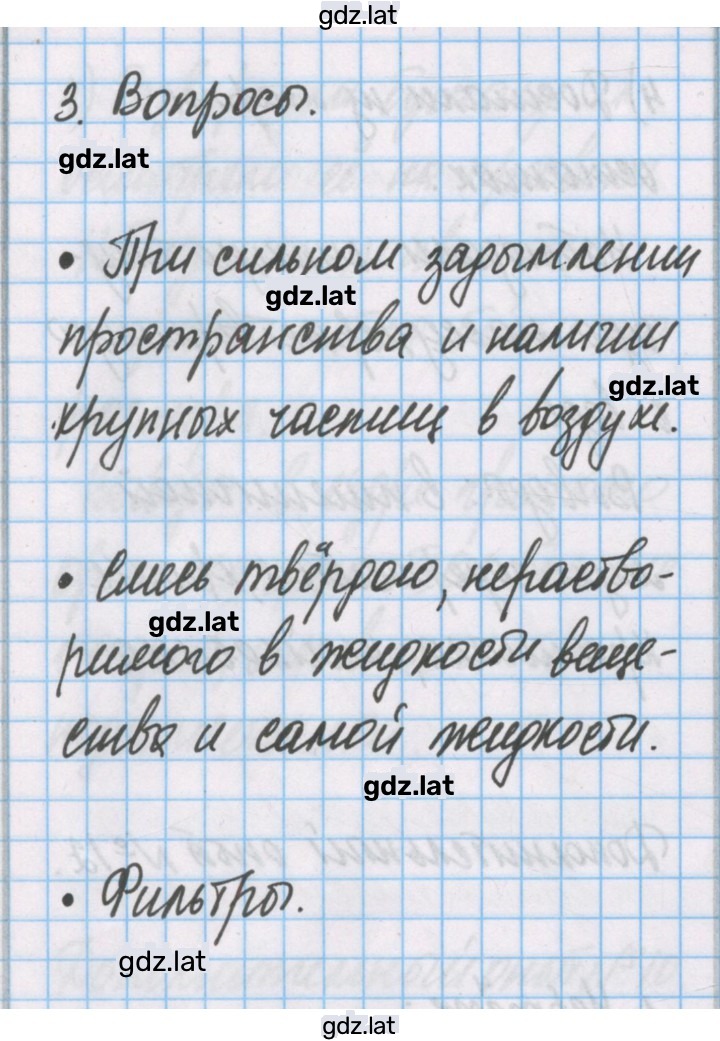 gdz.lat
3. Вопросы.
gdz.lat
• При сильном задымлении
gdz.lat
пространства и наличии
gdz.lat
крупных частиц в воздухе.
• Смесь твёрдого, нераство-
gdz.lat
римого в жидкости веще-
ства и самой жидкости.
gdz.lat
• Фильтры.
gdz.lat
gdz.lat